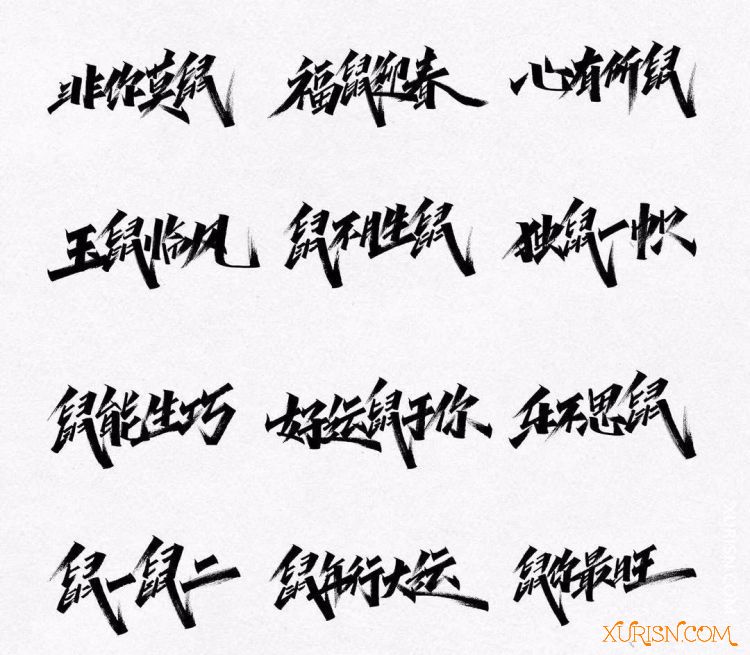 非你莫鼠 福鼠迎春 心有所鼠
玉鼠临风 鼠不胜鼠 独鼠一帜
鼠能生巧 好运鼠于你 乐不思鼠
鼠一鼠二 鼠年行大运 鼠你最旺
XURISN.COM